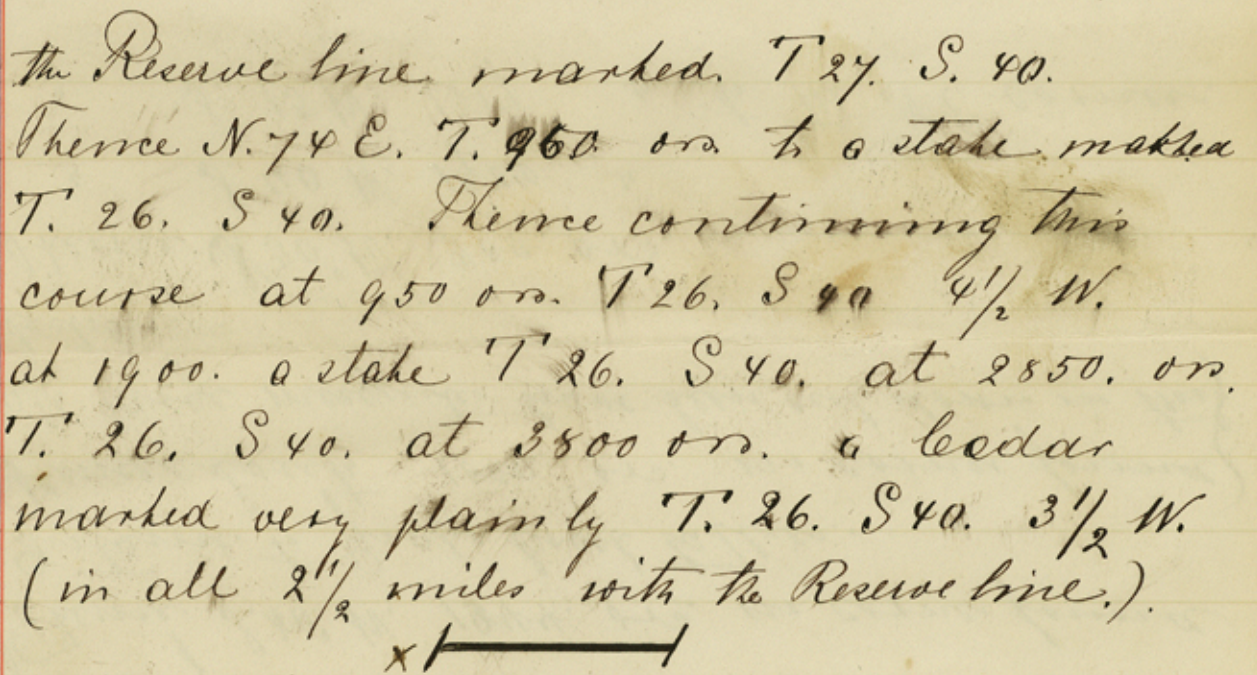 the Reserve line marked. T 27. S. 40.
Thence N. 74 E. T. 950 ors. to a stake makked
T. 26. S 40. Thence continuing this
course at 950 ors. T 26. S 40 4 1/2 W.
at 1900. a stake T 26. S 40. at 2850. ors.
T. 26. S 40. at 3800 ors. a Cedar
marked very plainly T. 26. S 40. 3 1/2 W.
(in all 2 1/2 miles with the Reserve line.).
x